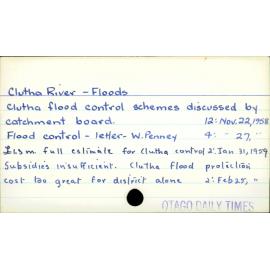 Clutha River - Floods
Clutha flood control schemes discussed by
catchment board. 12: Nov. 22, 1958
Flood control - letter - W. Penney 4: " 27, "
£2½m. full estimate for Clutha control 2: Jan 31, 1959
Subsidies insufficient. Clutha flood protection
cost too great for district alone 2: Feb 25, "
OTAGO DAILY TIMES